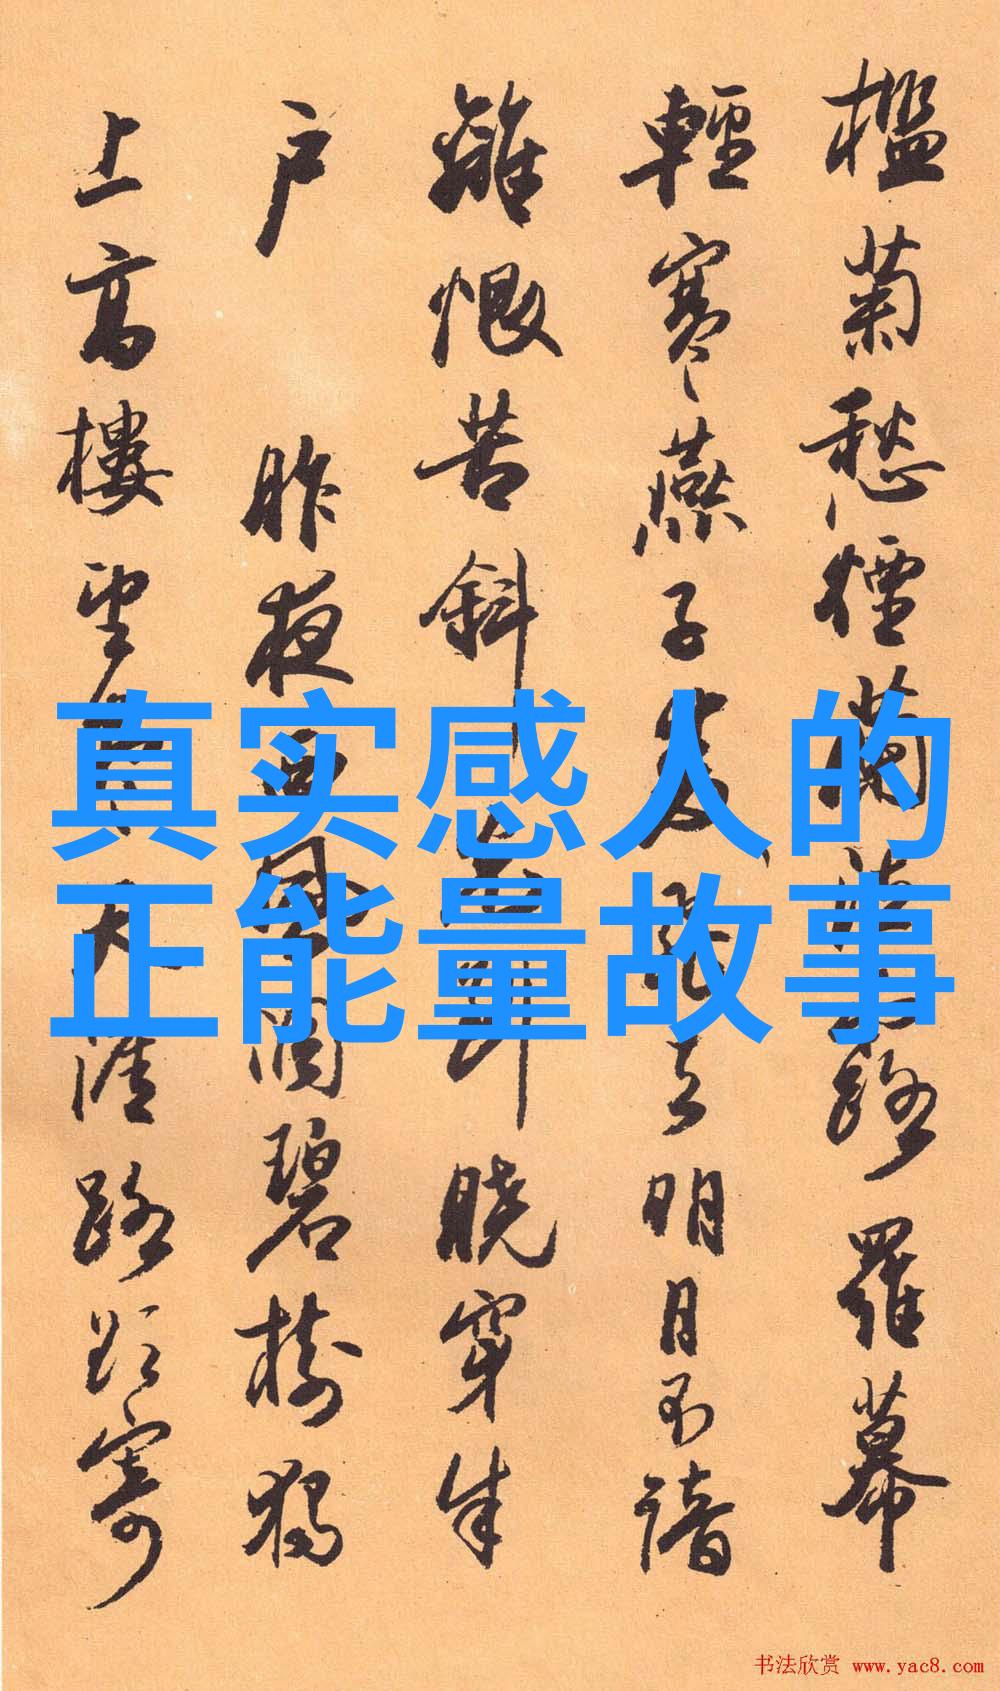 檻菊愁煙蘭泣露羅幕
輕寒燕子雙飛去明月不諳
離恨苦斜光到曉穿朱
户 昨夜西風凋碧樹獨
上高樓望盡天涯路欲寄
真实感人的
正能量故事
书法欣赏 www.yac8.com